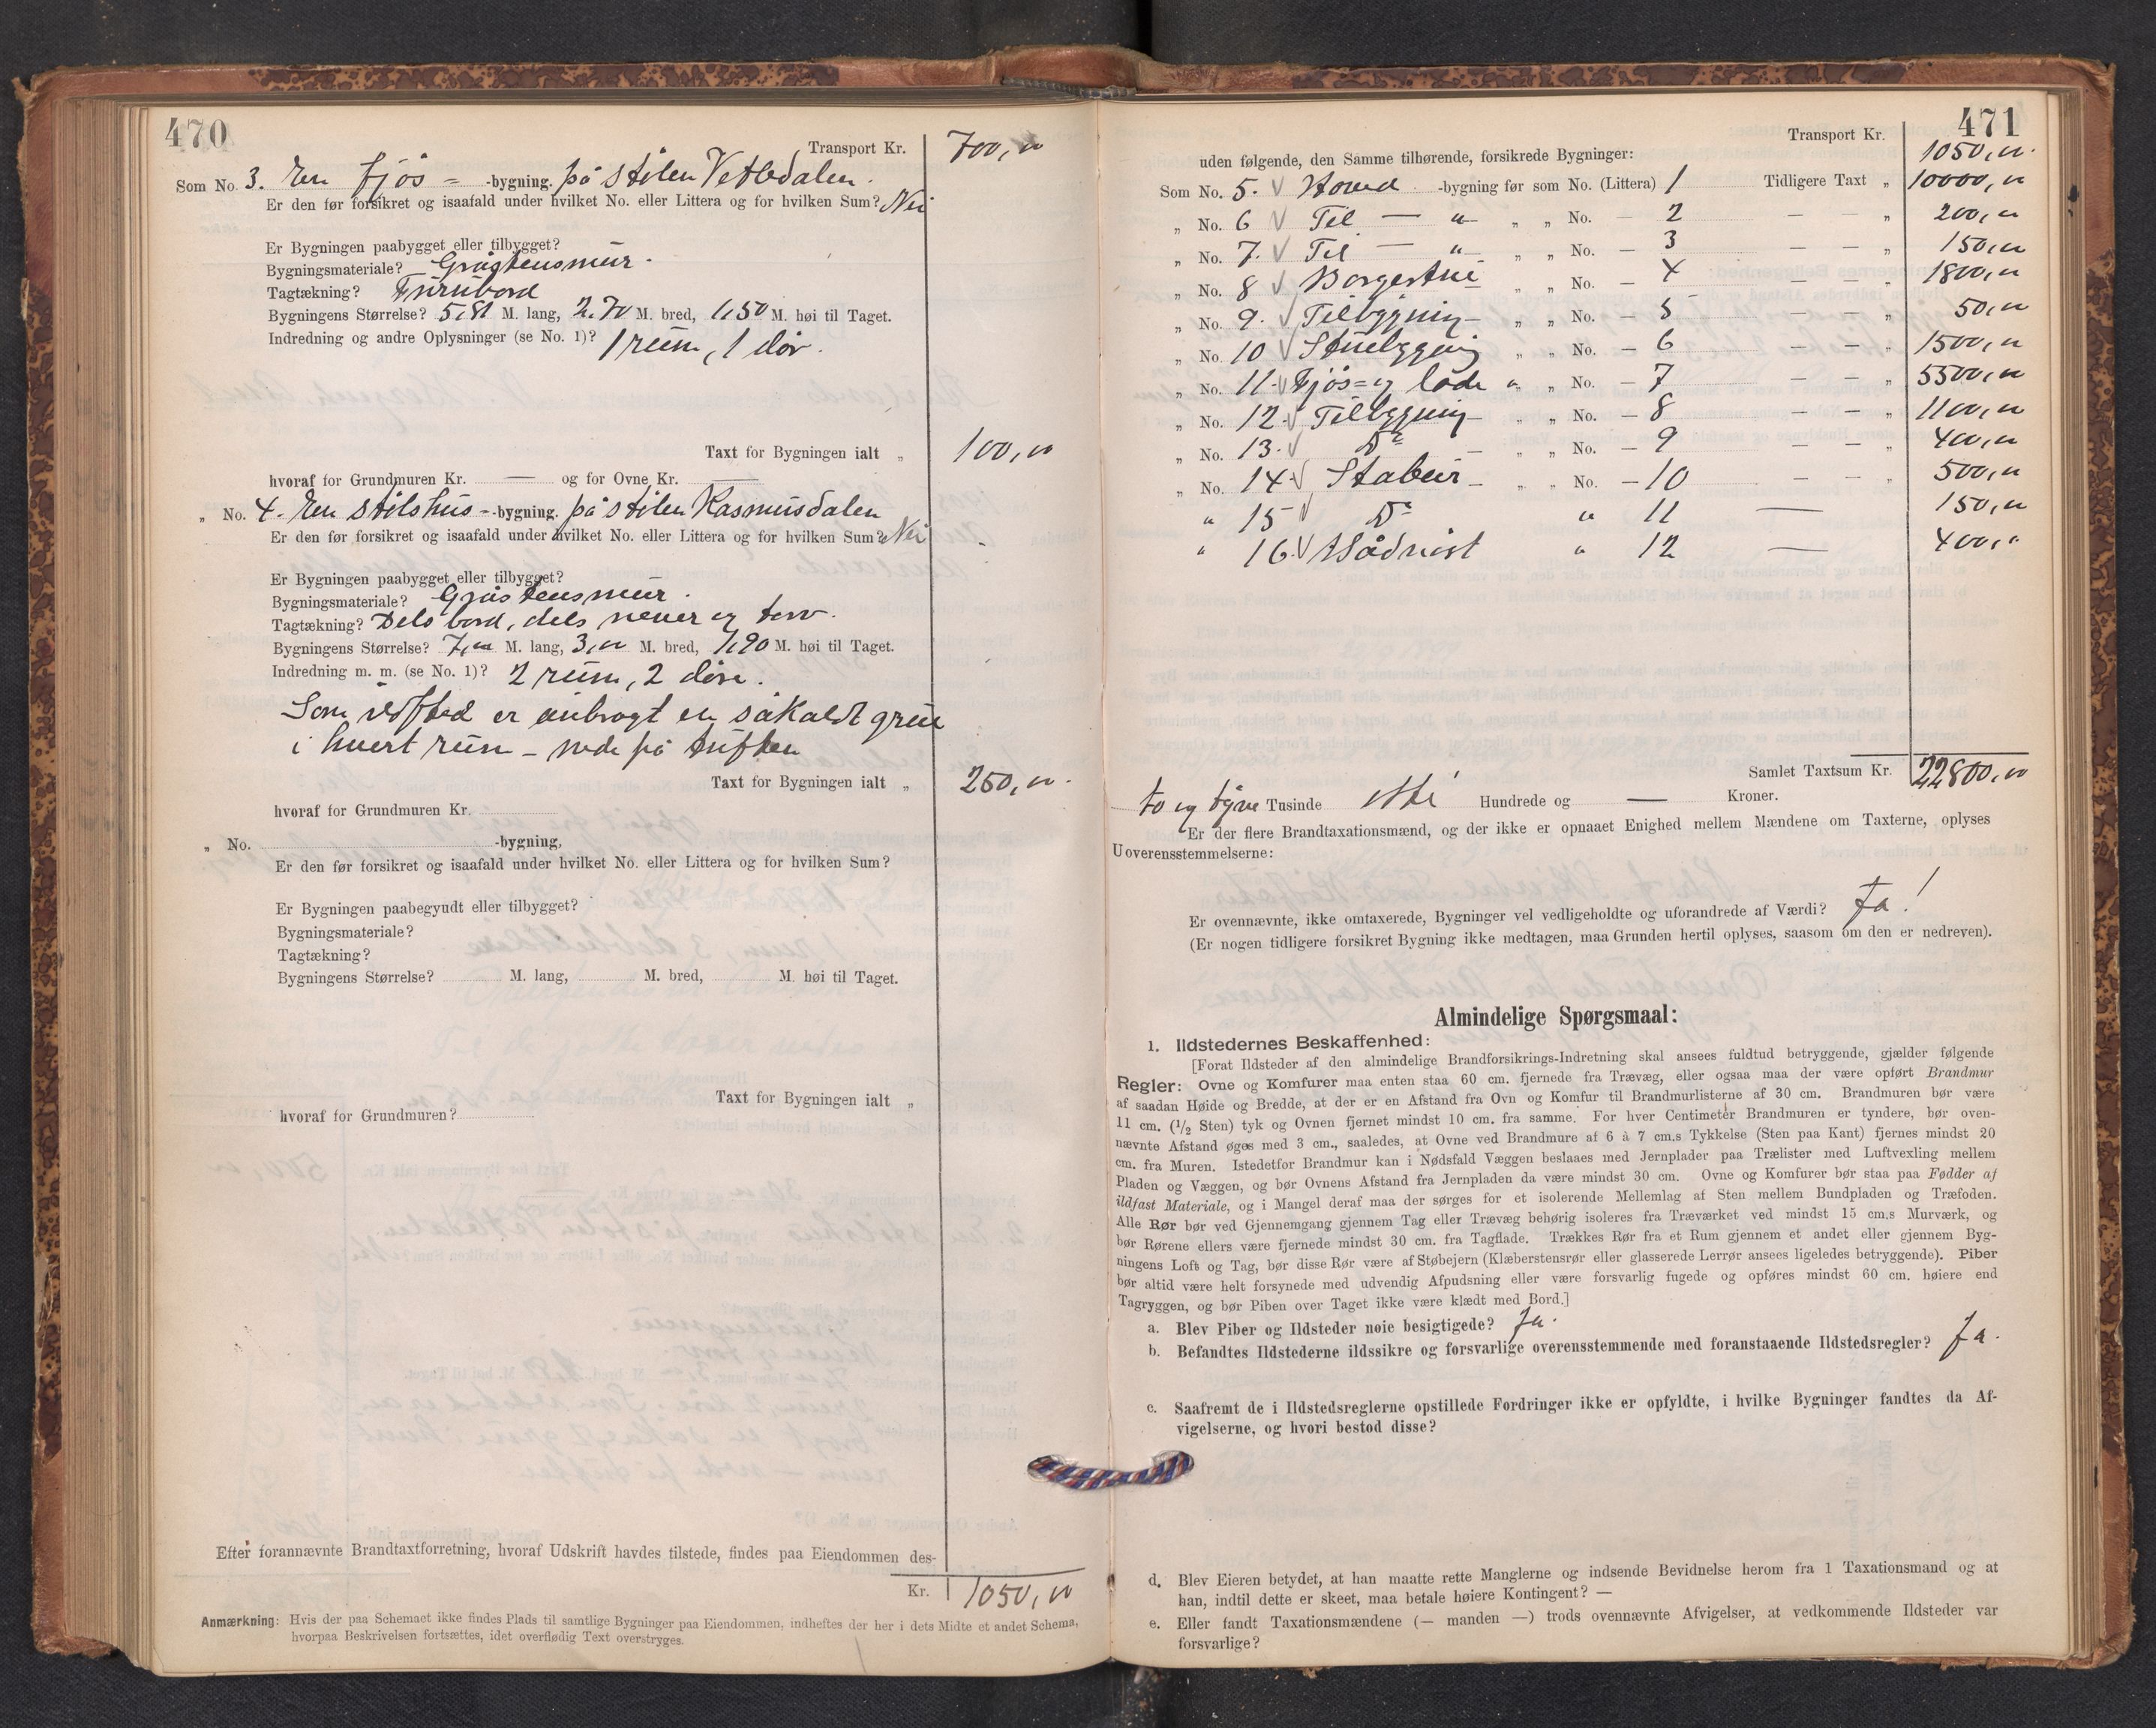 470
Transport Kr. 700,00
Som No. 3. En fjös= -bygning. på stölen Vetledalen.
Er den før forsikret og isaafald under hvilket No. eller Littera og for hvilken Sum? Nei
Er Bygningen paabygget eller tilbygget?
Bygningsmateriale? Gråstensmur.
Tagtækning? Furubord
Bygningens Størrelse? 5,81 M. lang, 2,70 M. bred, 1,50 M. høi til Taget.
Indredning og andre Oplysninger (se No. 1)? 1 rum, 1 dör.
Taxt for Bygningen ialt „ 100,00
hvoraf for Grundmuren Kr. — og for Ovne Kr. —
„ No. 4. En stölshus- -bygning. på stölen Rasmusdalen
Er den før forsikret og isaafald under hvilket No. eller Littera og for hvilken Sum? Nei
Er Bygningen paabygget eller tilbygget?
Bygningsmateriale? Gråstensmur.
Tagtækning? Dels bord, dels never og torv.
Bygningens Størrelse? 7,00 M. lang, 3,00 M. bred, 1,90 M. høi til Taget.
Indredning m. m. (se No. 1)? 2 rum, 2 döre.
Som ildsted er anbragt en såkaldt grue
i hvert rum – nede på tuften
Taxt for Bygningen ialt „ 250,00
hvoraf for Grundmuren Kr.
„ No. -bygning,
Er den før forsikret og isaafald under hvilket No. eller Littera og for hvilken Sum?
Er Bygningen paabegyndt eller tilbygget?
Bygningsmateriale?
Tagtækning?
Bygningens Størrelse? M. lang, M. bred, M. høi til Taget.
Taxt for Bygningen ialt „
hvoraf for Grundmuren?
Efter forannævnte Brandtaxtforretning, hvoraf Udskrift havdes tilstede, findes paa Eiendommen des-
Kr. 1050,00
Anmærkning: Hvis der paa Schemaet ikke findes Plads til samtlige Bygninger paa Eiendommen, indheftes der her i dets Midte et andet Schema,
hvorpaa Beskrivelsen fortsættes, idet overflødig Text overstryges.
471
Transport Kr. 1050,00
uden følgende, den Samme tilhørende, forsikrede Bygninger:
Som No. 5. √ Hoved -bygning før som No. (Littera) 1 Tidligere Taxt „ 10000,00
„ No. 6 √ Til — „ „ „ No. — 2 — — „ 200,00
„ No. 7. √ Til — „ „ „ No. — 3 — — „ 150,00
„ No. 8 √ Borgestue „ „ No. — 4 — — „ 1800,00
„ No. 9. √ Tilbygning „ „ No. — 5 — — „ 50,00
„ No. 10 √ Stuebygning „ „ No. — 6 — — „ 1500,00
„ No. 11. √ Fjös= og löde „ „ No. — 7 — — „ 5500,00
„ No. 12. √ Tilbygning „ „ No. — 8 — — „ 1100,00
„ No. 13. √ Do — „ „ No. — 9 — — „ 400,00
„ No. 14. √ Stabur — „ „ No. — 10 — — „ 500,00
„ 15 √ Do „ 11 — 150,00
„ 16. √ Vådnöst „ 12 — 400,„
Samlet Taxtsum Kr. 22800,00
to og tyve Tusinde otte Hundrede og — Kroner.
Er der flere Brandtaxationsmænd, og der ikke er opnaaet Enighed mellem Mændene om Taxterne, oplyses
Uoverensstemmelserne:
Er ovennævnte, ikke omtaxerede, Bygninger vel vedligeholdte og uforandrede af Værdi? Ja!
(Er nogen tidligere forsikret Bygning ikke medtagen, maa Grunden hertil oplyses, saasom om den er nedreven).
Almindelige Spørgsmaal:
1. Ildstedernes Beskaffenhed:
[Forat Ildsteder af den almindelige Brandforsikrings-Indretning skal ansees fuldtud betryggende, gjælder følgende
Regler: Ovne og Komfurer maa enten staa 60 cm. fjernede fra Trævæg, eller ogsaa maa der være opført Brandmur
af saadan Høide og Bredde, at der er en Afstand fra Ovn og Komfur til Brandmurlisterne af 30 cm. Brandmuren bør være
11 cm. (1/2 Sten) tyk og Ovnen fjernet mindst 10 cm. fra samme. For hver Centimeter Brandmuren er tyndere, bør oven-
nævnte Afstand øges med 3 cm., saaledes, at Ovne ved Brandmure af 6 à 7 cm.s Tykkelse (Sten paa Kant) fjernes mindst 20
cm. fra Muren. Istedetfor Brandmur kan i Nødsfald Væggen beslaaes med Jernplader paa Trælister med Luftvexling mellem
Pladen og Væggen, og bør Ovnens Afstand fra Jernpladen da være mindst 30 cm. Ovne og Komfurer bør staa paa Fødder af
ildfast Materiale, og i Mangel deraf maa der sørges for et isolerende Mellemlag af Sten mellem Bundpladen og Træfoden.
Alle Rør bør ved Gjennemgang gjennem Tag eller Trævæg behørig isoleres fra Træværket ved mindst 15 cm.s Murværk, og
bør Rørene ellers være fjernede mindst 30 cm. fra Tagflade. Trækkes Rør fra et Rum gjennem et andet eller gjennem Byg-
ningens Loft og Tag, bør disse Rør være af Støbejern (Klæberstensrør eller glasserede Lerrør ansees ligeledes betryggende). Piber
bør altid være helt forsynede med udvendig Afpudsning eller være forsvarlig fugede og opføres mindst 60 cm. høiere end
Tagryggen, og bør Piben over Taget ikke være klædt med Bord.]
a. Blev Piber og Ildsteder nøie besigtigede? Ja.
b. Befandtes Ildstederne ildssikre og forsvarlige overensstemmende med foranstaaende Ildstedsregler? Ja.
c. Saafremt de i Ildstedsreglerne opstillede Fordringer ikke er opfyldte, i hvilke Bygninger fandtes da Af-
vigelserne, og hvori bestod disse?
d. Blev Eieren betydet, at han maatte rette Manglerne og indsende Bevidnelse herom fra 1 Taxationsmand og at
han, indtil dette er skeet, maa betale høiere Kontingent? —
e. Eller fandt Taxationsmændene (— manden —) trods ovennævnte Afvigelser, at vedkommende Ildsteder var
forsvarlige?